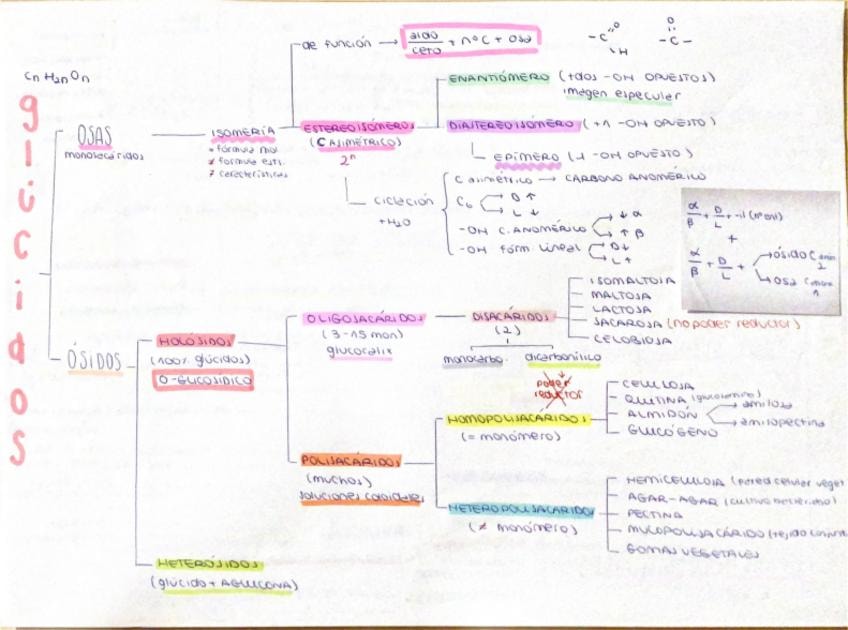 Cn H2n On
glúcidos
OSAS
monosacáridos
ISOMERÍA
= fórmula mol.
≠ formula estr.
≠ características
de función → aldo/ceto + nºC + osa
-C=O
H
O
-C-
ESTEREOISÓMEROS
(C ASIMÉTRICO)
2ⁿ
ENANTIÓMERO (todos -OH OPUESTOS)
imagen especular
DIASTEREOISÓMERO (+1 -OH OPUESTO)
EPÍMERO (1 -OH OPUESTO)
ciclación
+H2O
C asimétrico → CARBONO ANOMÉRICO
C6 D ↑
L ↓
-OH C. ANOMÉRICO ↓ α
↑ β
-OH fórm. lineal D↓
L↑
α/β + D/L + -il (nº OH)
+
α/β + D/L + → ósido C anom 2
→ osa C anom 1
ÓSIDOS
HOLÓSIDOS
(100% glúcidos)
O-GLUCOSÍDICO
OLIGOSACÁRIDOS
(3-15 mon)
glucocalix
DISACÁRIDOS
(2)
monocarbo.
dicarbonílico
↓
poder
reductor
ISOMALTOSA
MALTOSA
LACTOSA
SACAROSA (no poder reductor)
CELOBIOSA
POLISACÁRIDOS
(muchos)
soluciones coloidales
HOMOPOLISACÁRIDOS
(= monómero)
CELULOSA
QUITINA (glucosamina)
ALMIDÓN → amilosa
→ amilopectina
GLUCÓGENO
HETEROPOLISACÁRIDO
(≠ monómero)
HEMICELULOSA (pared celular veget
AGAR-AGAR (cultivo bacteriano)
PECTINA
MUCOPOLISACÁRIDO (tejido conjun
GOMAS VEGETALES
HETERÓSIDOS
(glúcido + AGLUCONA)